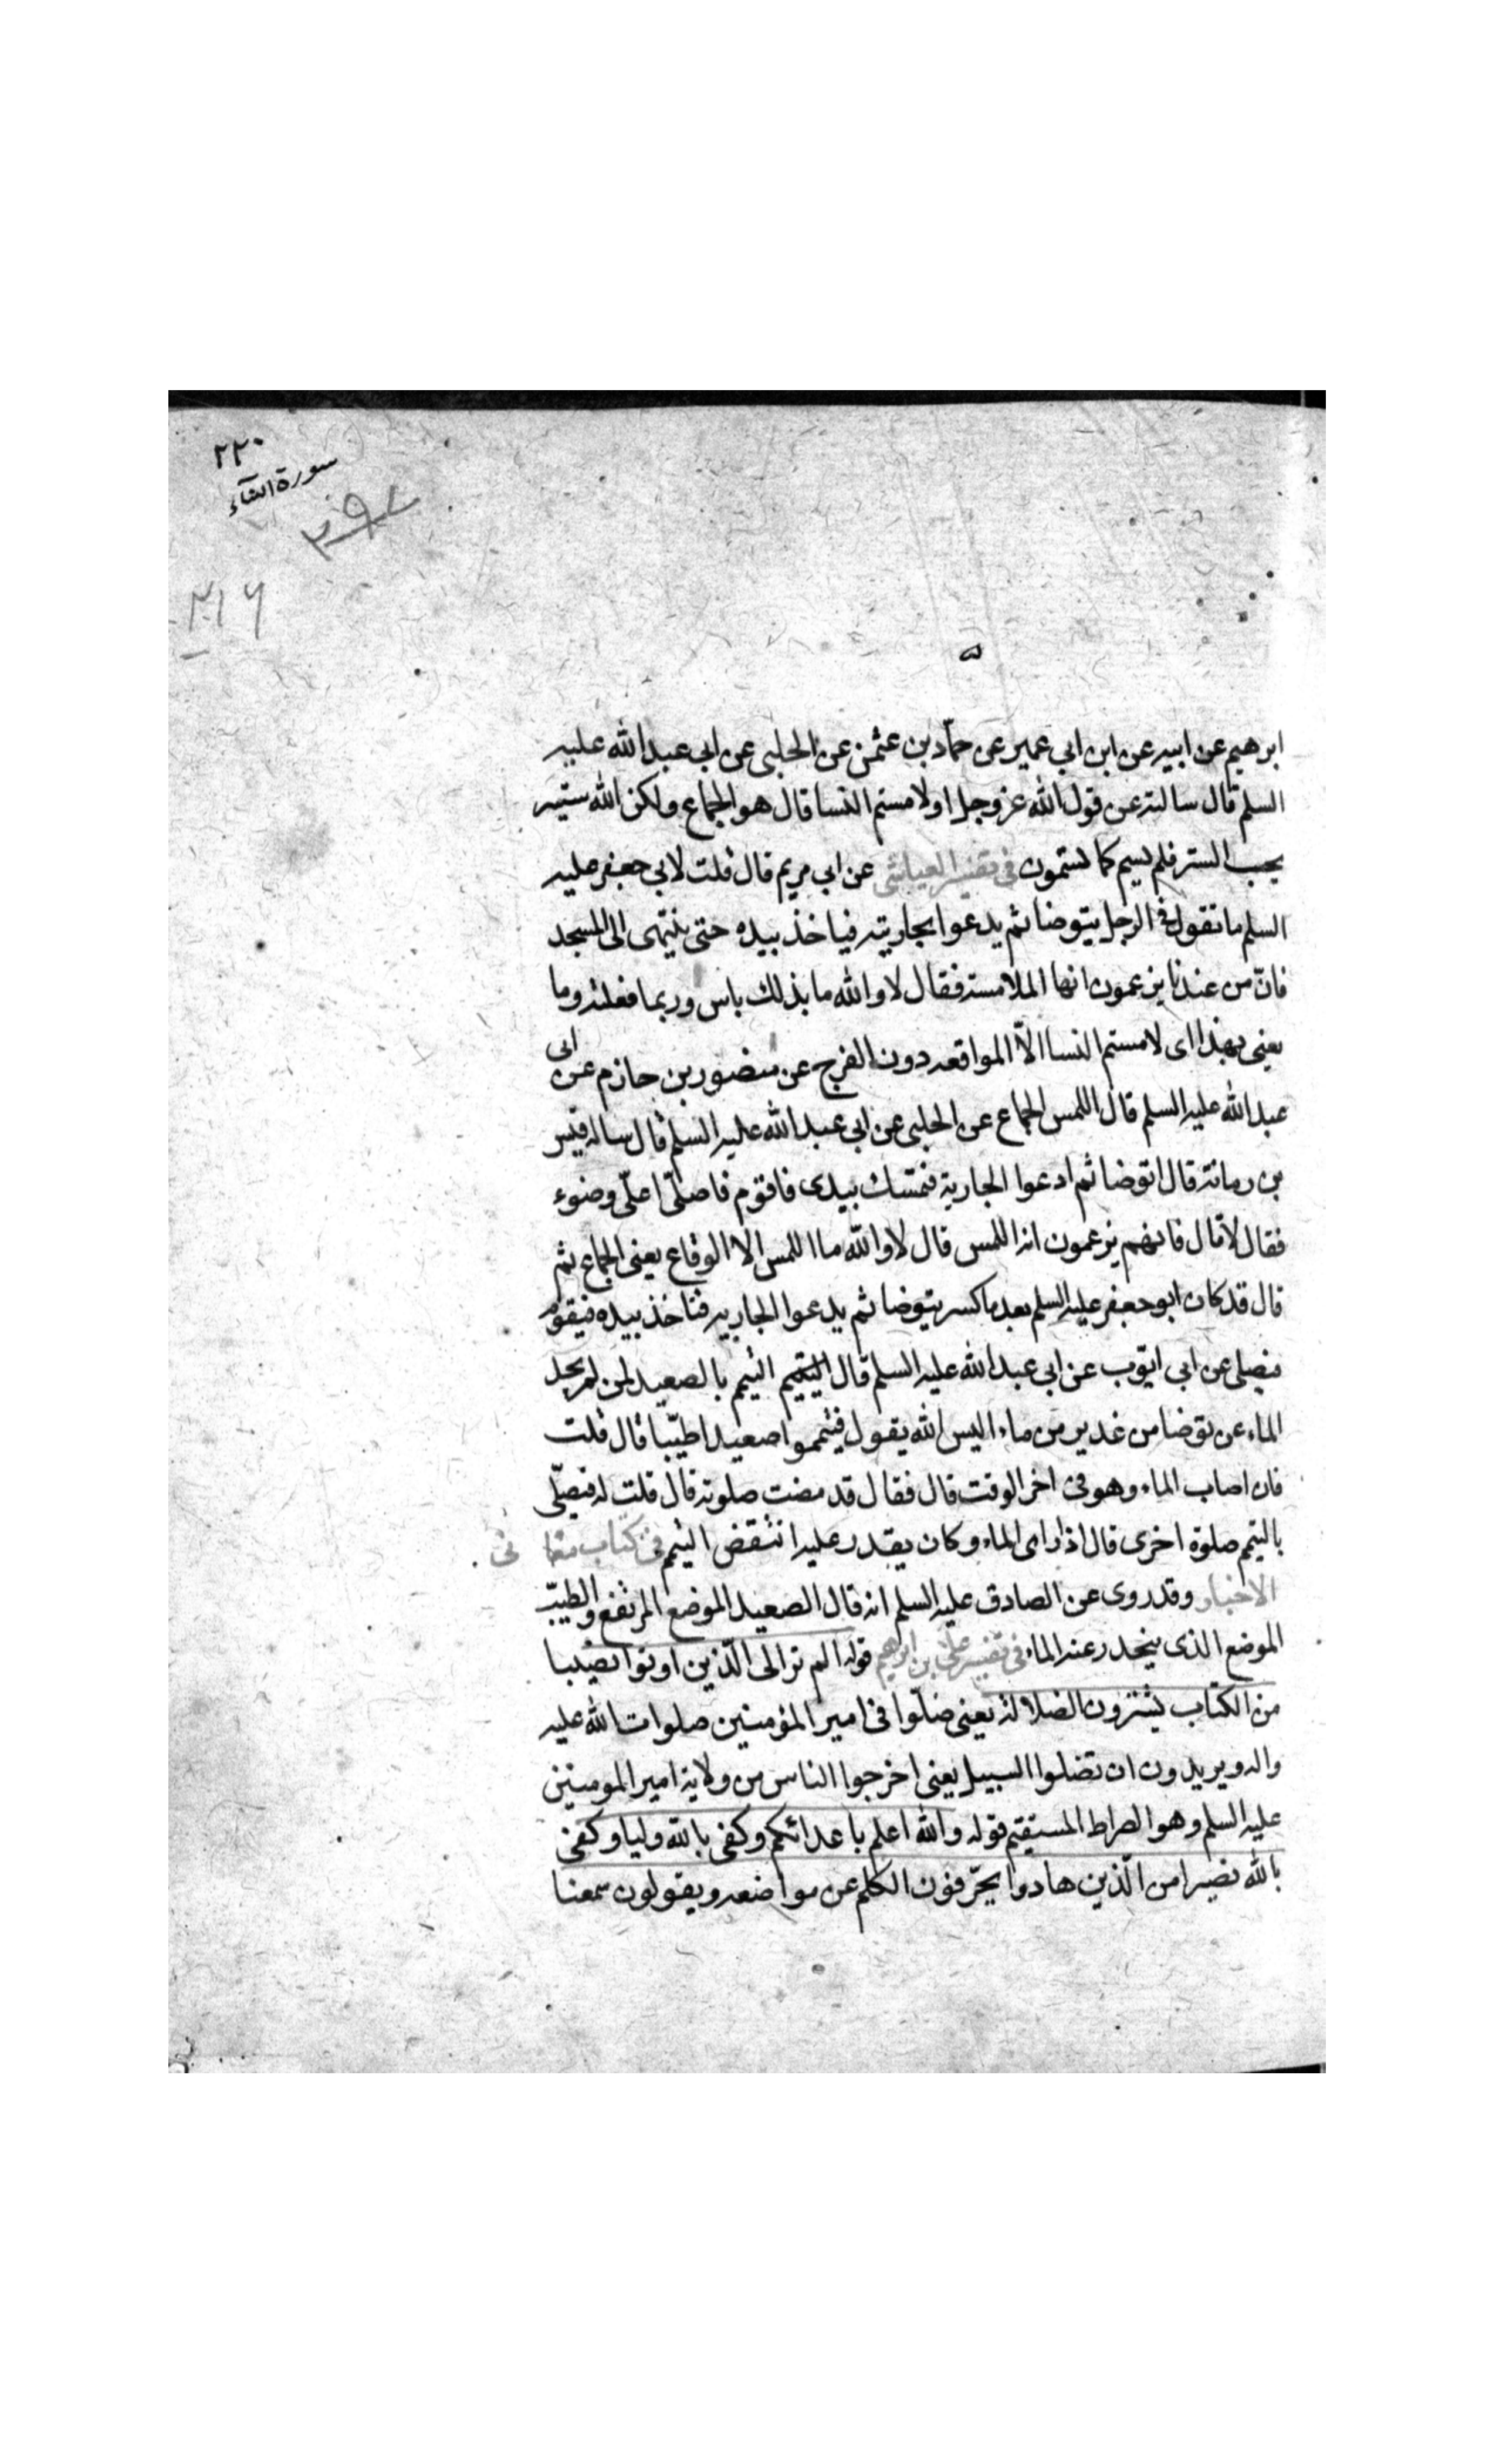 ٢٢٠
سورة النساء
٢١٦
ابرهيم عن ابيه عن ابن ابي عمير عن حمّاد بن عثمن عن الحلبى عن ابى عبد الله عليه
السلم قال سالته عن قول الله عز وجل او لامستم النسا قال هو الجماع ولكن الله ستير
يحب الستر فلم يسم كما تسمون فى تفسير العياشى عن ابى مريم قال قلت لابى جعفر عليه
السلم ما تقول فى الرجل يتوضا ثم يدعوا بجاريته فياخذ بيده حتى ينتهى الى المسجد
فانّ من عندنا يزعمون انها الملامسة فقال لا والله ما بذلك باس وربما فعلته وما
يعنى بهذا اى لامستم النسا الّا المواقعه دون الفرج عن منصور بن حازم عن ابى
عبد الله عليه السلم قال اللمس الجماع عن الحلبى عن ابى عبد الله عليه السلم قال ساله قيس
بن رمانة قال اتوضا ثم ادعوا الجارية فتمسك بيدى فاقوم فاصلّى اعلّى وضوء
فقال لا قال فانهم يزعمون انه اللمس قال لا والله ما اللمس الا الوقاع يعنى الجماع ثم
قال قد كان ابو جعفر عليه السلم بعد ما كبر يتوضا ثم يدعوا الجاريه فتاخذ بيده فيقوم
فيصلى عن ابى ايّوب عن ابى عبد الله عليه السلم قال التيمم بالصعيد لمن لم يجد
الماء عن توضا من غدير من ماء اليس الله يقول فتيمموا صعيدا طيّبا قال قلت
فان اصاب الماء وهو فى اخر الوقت قال فقال قد مضت صلوته قال قلت له فيصلّى
بالتيمم صلوة اخرى قال اذا راى الماء وكان يقدر عليه انتقض التيمم فى كتاب معا نى
الاخبار وقد روى عن الصادق عليه السلم انه قال الصعيد الموضع المرتفع والطيّب
الموضع الذى ينحدر عنه الماء فى تفسير علىّ بن ابرهيم قوله الم تر الى الّذين اوتوا نصيبا
من الكتاب يشترون الضلالة يعنى ضلّوا فى امير المؤمنين صلوات الله عليه
واله ويريدون ان تضلوا السبيل يعنى اخرجوا الناس من ولاية امير المومنين
عليه السلم وهو الصراط المستقيم قوله والله اعلم باعدائكم وكفى بالله وليا وكفى
بالله نصيرا من الّذين هادوا يحرّفون الكلم عن مواضعه ويقولون سمعنا